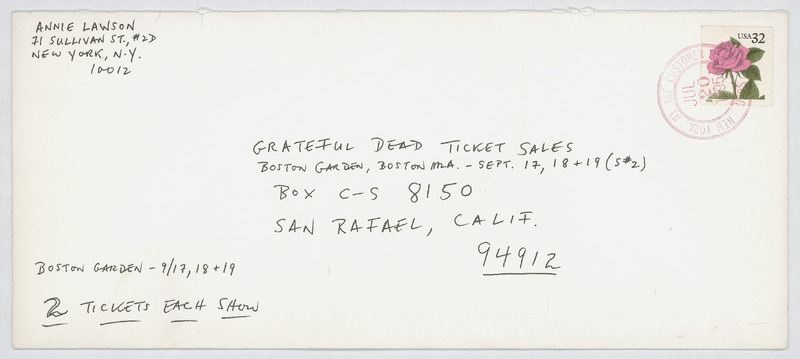 ANNIE LAWSON
71 SULLIVAN ST., #2D
NEW YORK, N.Y.
10012
USA 32
NEW YORK NY
JUL
20
1995
GRATEFUL DEAD TICKET SALES
BOSTON GARDEN, BOSTON MA. - SEPT. 17, 18 + 19 (S#2)
BOX C-S 8150
SAN RAFAEL, CALIF.
94912
BOSTON GARDEN - 9/17, 18 + 19
2 TICKETS EACH SHOW